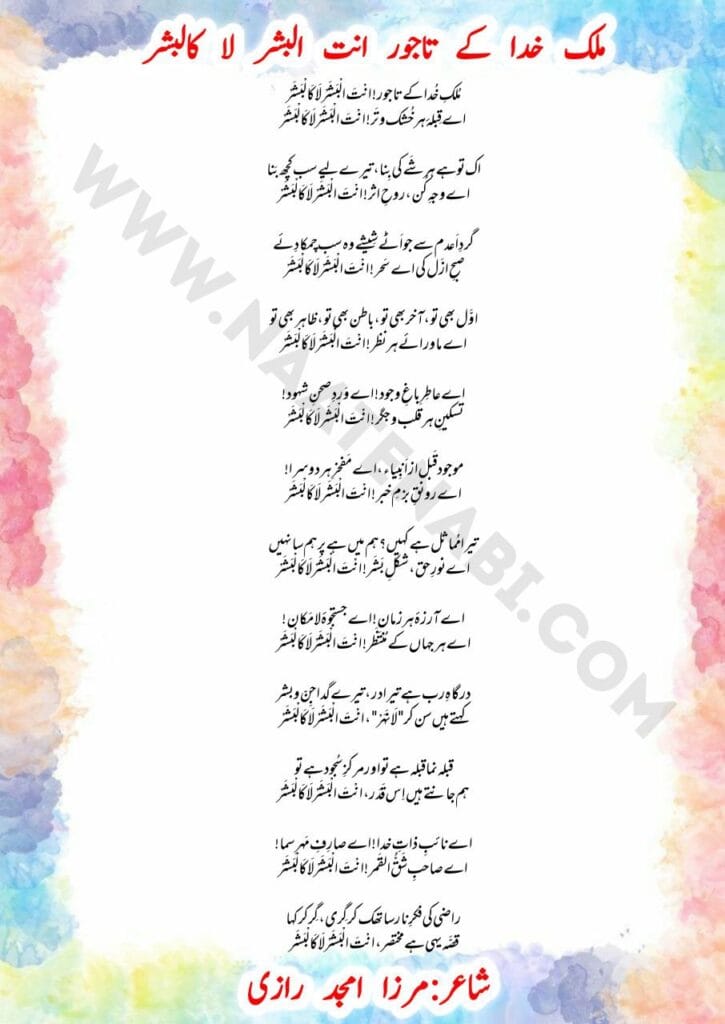 ملک خدا کے تاجور انت البشر لا کالبشر
مُلکِ خُدا کے تاجور! انتَ الْبَشَر لَا کَالْبَشَر
اے قبلۂ ہر خُشک و تَر! انتَ الْبَشَر لَا کَالْبَشَر
اک تو ہے ہر شَے کی بِنا، تیرے لیے سب کچھ بنا
اے وجہِ کُن، روحِ اثر! انتَ الْبَشَر لَا کَالْبَشَر
گردِ اَعدم سے جو اَٹے شِیشے وہ سب چمکا دِئے
صبحِ ازَل کی اے سَحر! انتَ الْبَشَر لَا کَالْبَشَر
اوّل بھی تو، آخر بھی تو، باطن بھی تو، ظاہر بھی تو
اے ماورائے ہر نظر! انتَ الْبَشَر لَا کَالْبَشَر
اے عاطرِ باغِ وجود! اے وَردِ صحنِ شہود!
تسکینِ ہر قلب و جگر! انتَ الْبَشَر لَا کَالْبَشَر
موجود قَبل از اَنبیاء، اے مَفخرِ ہر دوسرا!
اے رونقِ بزمِ خبر! انتَ الْبَشَر لَا کَالْبَشَر
تیرا مُماثل ہے کہیں؟ ہم میں ہے پر ہم سا نہیں
اے نورِ حق، شکلِ بَشَر! انتَ الْبَشَر لَا کَالْبَشَر
اے آرزۂ ہر زمان! اے جستجوۂ لامکان!
اے ہر جہاں کے مُنتَظَر! انتَ الْبَشَر لَا کَالْبَشَر
درگاہِ رب ہے تیرا در، تیرے گدا جِنّ و بشر
کہتے ہیں سن کر "لَا تَنہَرْ"، انتَ الْبَشَر لَا کَالْبَشَر
قبلہ نما قبلہ ہے تو اور مرکزِ سُجود ہے تو
ہم جانتے ہیں اِس قَدر، انتَ الْبَشَر لَا کَالْبَشَر
اے نائبِ ذاتِ خدا! اے صارفِ مَہرِ سما!
اے صاحبِ شَقُّ القَمر! انتَ الْبَشَر لَا کَالْبَشَر
راضی کی فکرِ نارسا تھک کر گری، گِر کر کہا
قصّہ یہی ہے مختصر، انتَ الْبَشَر لَا کَالْبَشَر
شاعر:مرزا امجد رازی
WWW.NAATENABI.COM